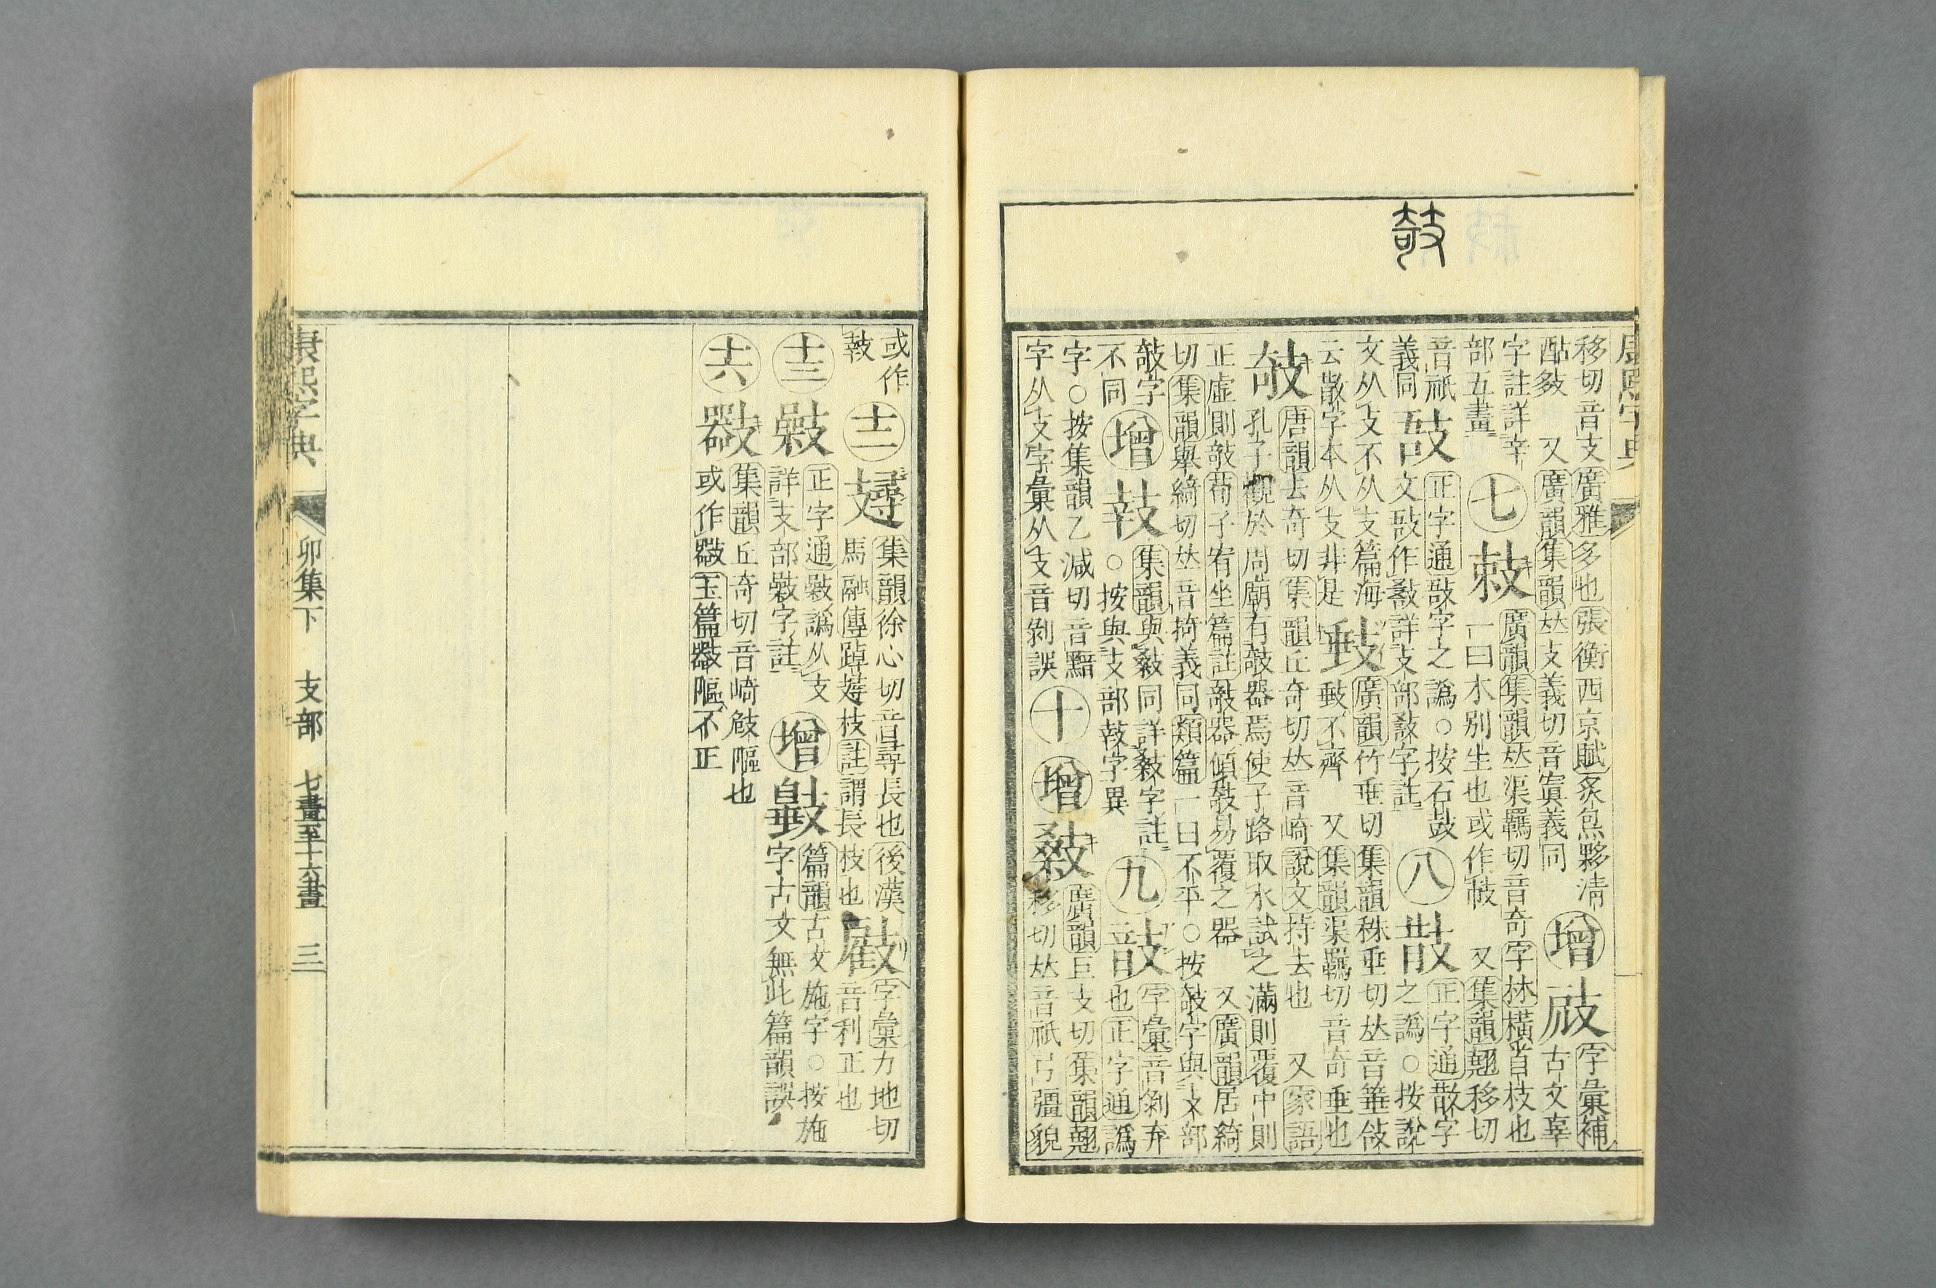 移切音支廣雅多也張衡西京賦炙炰夥清
酤㩼　又廣韻集韻𠀤支義切音寘義同
增
古文辜
字彙補
字註詳辛
部五畫
七
廣韻集韻𠀤渠羈切音奇字林橫首枝也
一曰木别生也或作㩽　又集韻翹移切
音祇
義同
正字通敔字之譌○按石鼓
文敔作𢾾詳攴部敔字註
八
𢻪
正字通散字
之譌○按說
文从攴不从支篇海
云散字本从支非是
廣韻竹垂切集韻株垂切𠀤音箠敍
不齊　又集韻渠羈切音奇垂也
攲
唐韻去奇切集韻丘奇切𠀤音崎說文持去也　又家語
孔子觀於周廟有攲器焉使子路取水試之滿則覆中則
正虛則攲荀子宥坐篇註攲器傾攲易覆之器　又廣韻居綺
切集韻舉綺切𠀤音掎義同類篇一曰不平○按攲字與攴部
敧字
不同
增
集韻與㩻同詳㩻字註
○按與攴部㪇字異
九
字彙音剝弃
也正字通譌
字○按集韻乙減切音黯
字从攴字彙从支音剝誤
十
增
廣韻巨支切集韻翹
移切𠀤音祇弓彊貌
或作
㩽
十二
集韻徐心切音尋長也後漢
馬融傳踔攳枝註謂長枝也
字彙力地切
音利正也
十三
正字通㩿譌从支
詳攴部㩿字註
增
篇韻古文施字○按施
字古文無此篇韻誤
十六
集韻丘奇切音崎㩽䧢也
或作㩿玉篇㩿䧢不正
康熙字典
卯集下　支部　七畫至十六畫　三